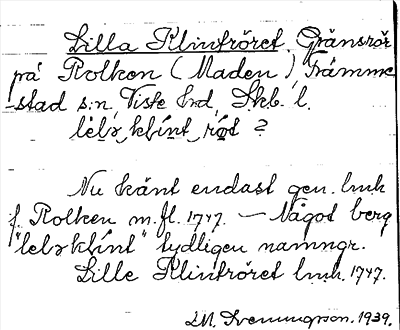 Lilla Klintröret, Gränsrör
på Rolken (Maden), Främme-
stad s:n, Viste hrd, Skb. l.
klint röt ?
Nu känt endast gen. lmk
f. Rolken m.fl. 1747. — Något berg
"klint" tydligen namngr.
Lille Klintröret lmk. 1747.
LM. Svenungsson. 1939.